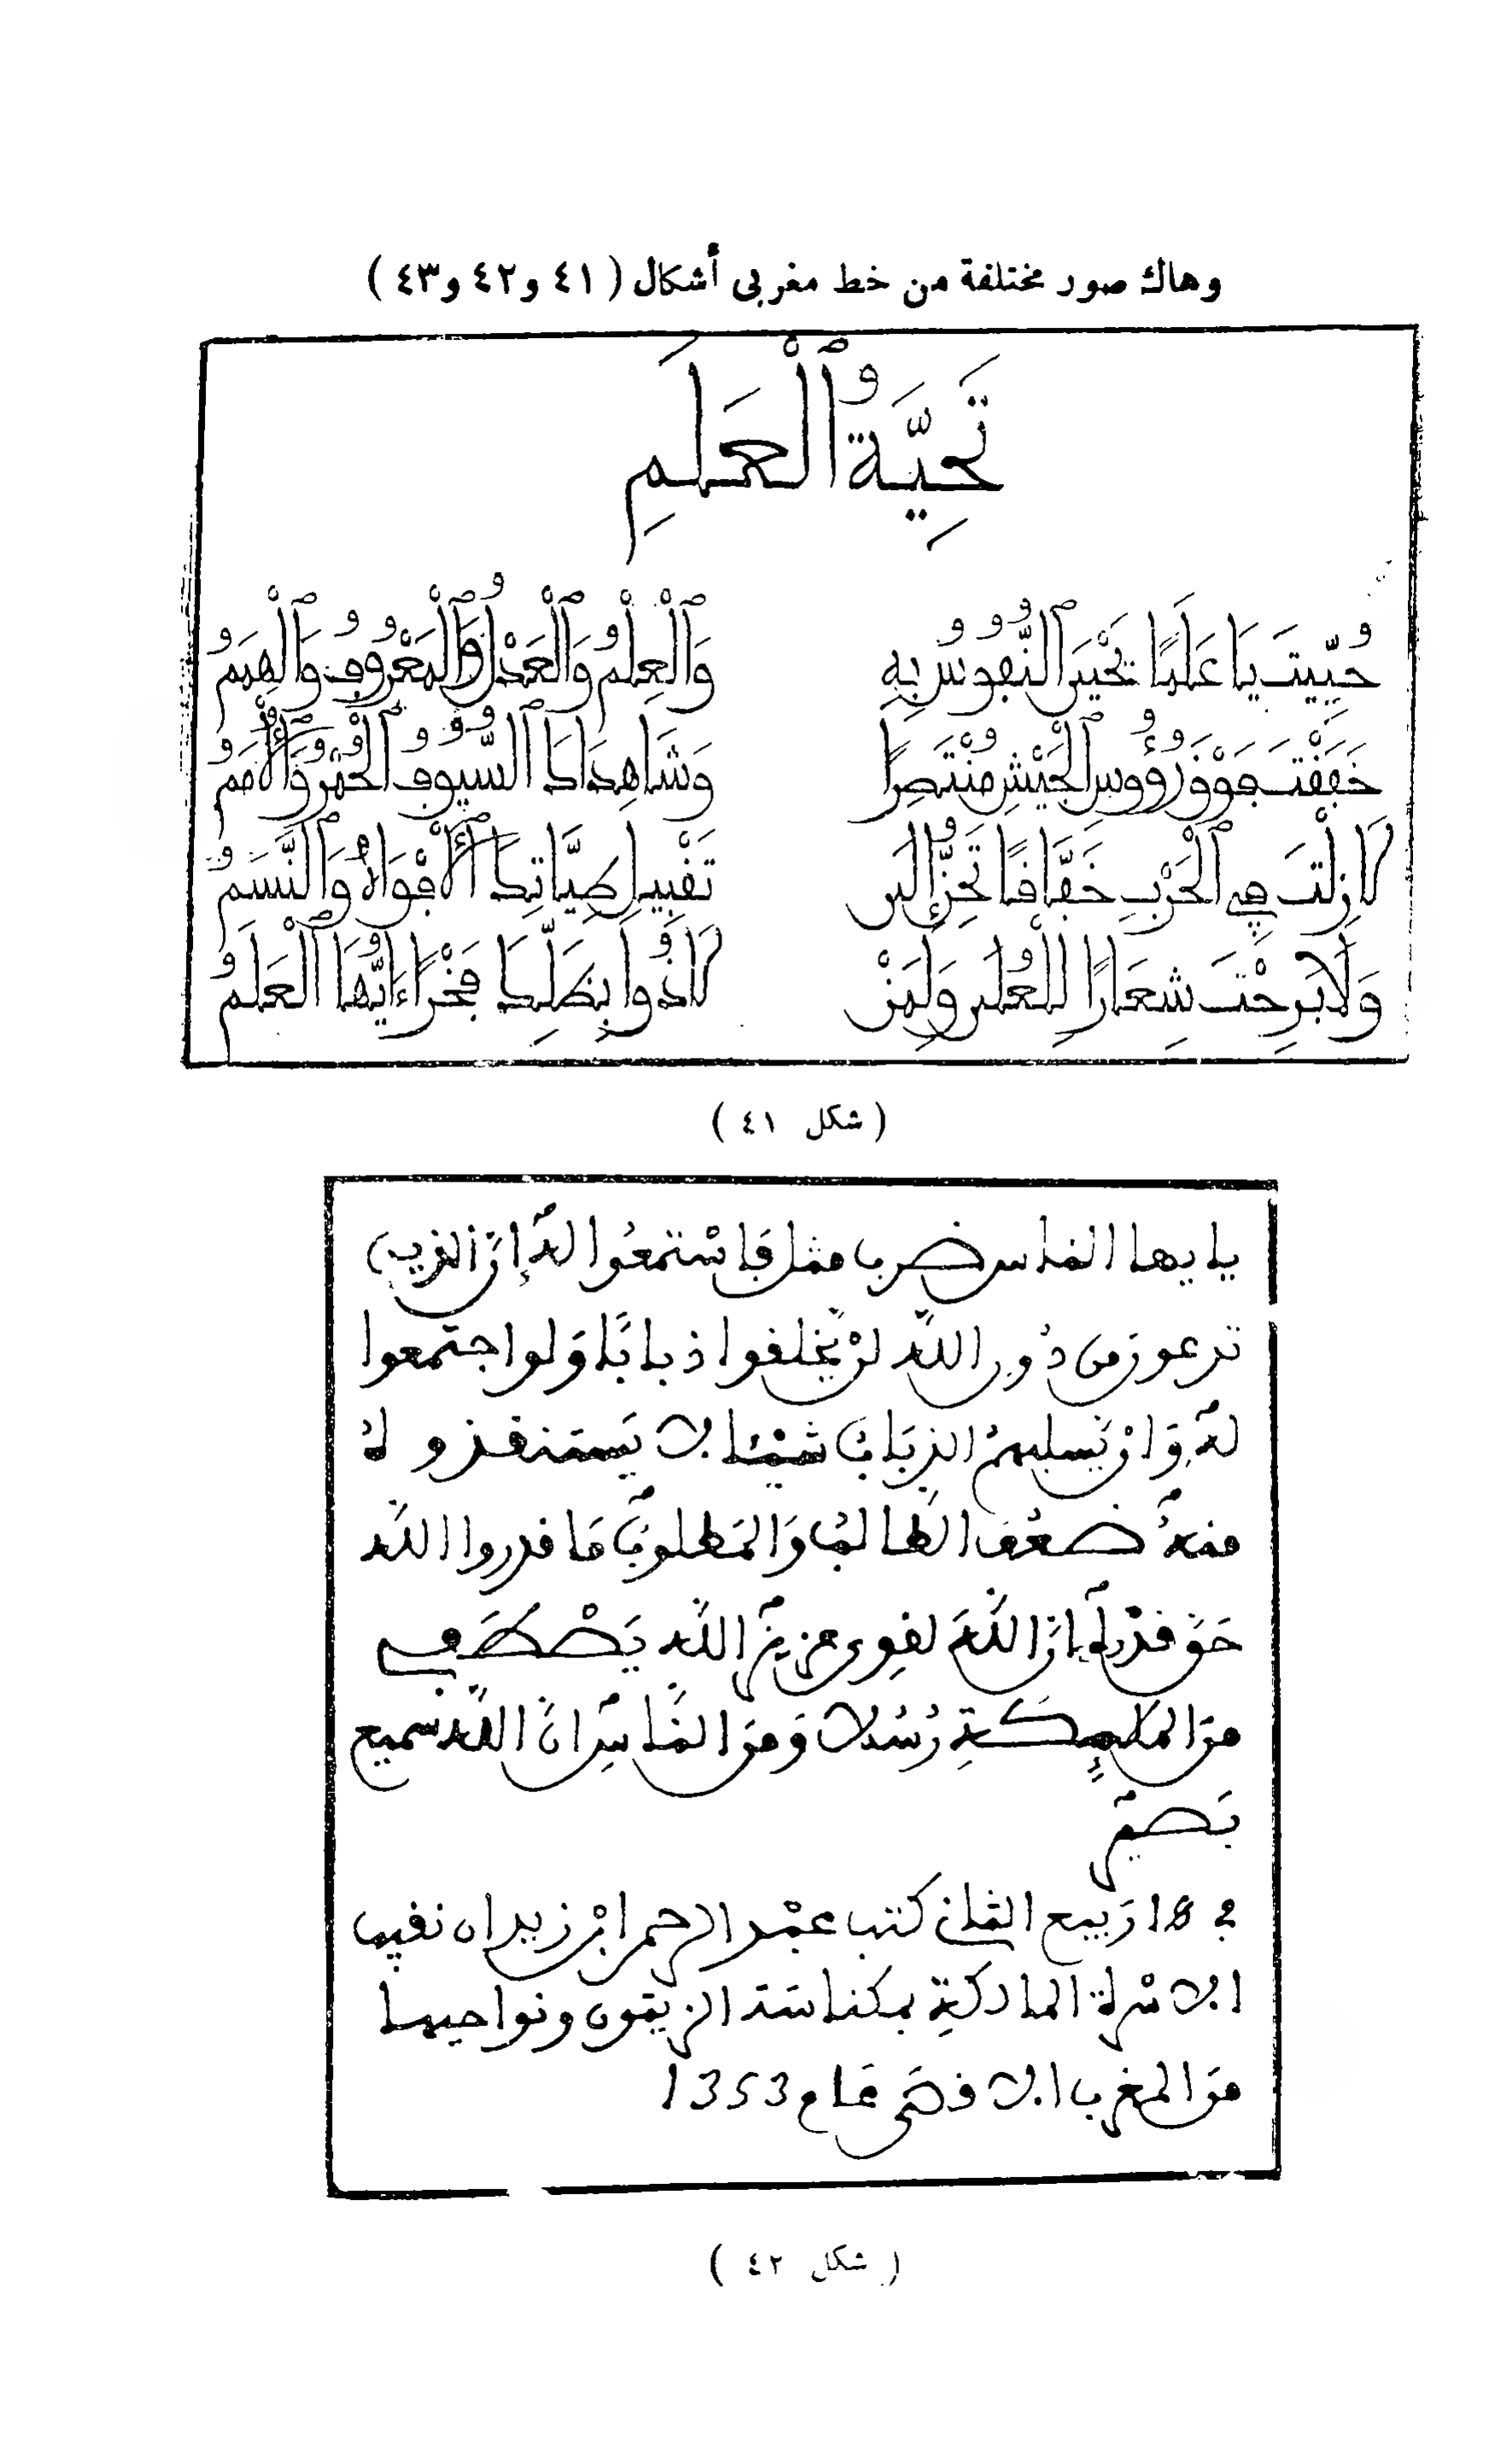 وهاك صور مختلفة من خط مغربى أشكال ( ٤١ و٤٢ و٤٣ )
تَحِيَّةُ ٱلْعَلَمِ
حُيِّيتَ يَا عَلَمًا تَحْيَى ٱلنُّفُوسُ بِهِ وَٱلْعِلْمُ وَٱلْعَدْلُ وَٱلْمَعْرُوفُ وَٱلْهِمَمُ
خَفَقْتَ فَوْقَ رُؤُوسِ ٱلْجَيْشِ مُنْتَصِرًا وَشَاهِدَاكَ ٱلسُّيُوفُ ٱلْحُمْرُ وَٱلْأُمَمُ
لَا زِلْتَ فِي ٱلْحَرْبِ خَفَّاقًا تَخِرُّ إِلَى تَقْبِيلِ طِيَّاتِكَ ٱلْأَفْوَاهُ وَٱلنَّسَمُ
وَلَا بَرِحْتَ شِعَارًا لِلْعُلَى وَلِمَنْ لَاذُوا بِظِلِّكَ فَخْرًا أَيُّهَا ٱلْعَلَمُ
( شكل ٤١ )
يايها الناس ضرب مثل فاسْتمعُوا لهٓ إنّ الذين
تدعون من دُون الله لنْ يّخلقوا ذبابًا وَلو اجتمعوا
لهٗ وَإنْ يّسلبهمُ الذبَابُ شيْئا لا يَستنقذولهُ
منهُ ضعُفَ الطالبُ وَالمَطلوبُ مَا قدروا الله
حَق قدْرهٓ إنّ اللّهَ لقوِى عزيزٌ اللّه يَصْطَفِي
مِنَ الملٰئِكةِ رُسُلا وَمِنَ النّاسِ انّ اللّه سَميع
بَصيرٌ
في 18 رَبيع الثاني كتب عبْد الرحمن ابْن زيدان نقيب
الاسْرة المالكةِ بمكناسَة الزيتون ونواحيها
مِنَ المغرب الاقصَى عَام 1353
( شكل ٤٢ )